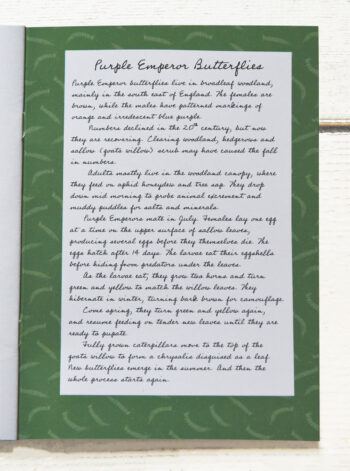 Purple Emperor Butterflies
Purple Emperor butterflies live in broadleaf woodland,
mainly in the south east of England. The females are
brown, while the males have patterned markings of
orange and irredescent blue purple.
Numbers declined in the 20th century, but now
they are recovering. Clearing woodland, hedgerows and
sallow (goats willow) scrub may have caused the fall
in numbers.
Adults mostly live in the woodland canopy, where
they feed on aphid honeydew and tree sap. They drop
down mid morning to probe animal excrement and
muddy puddles for salts and minerals.
Purple Emperors mate in July. Females lay one egg
at a time on the upper surface of sallow leaves,
producing several eggs before they themselves die. The
eggs hatch after 14 days. The larvae eat their eggshells
before hiding from predators under the leaves.
As the larvae eat, they grow two horns and turn
green and yellow to match the willow leaves. They
hibernate in winter, turning bark brown for camouflage.
Come spring, they turn green and yellow again,
and resume feeding on tender new leaves until they are
ready to pupate.
Fully grown caterpillars move to the top of the
goats willow to form a chrysalis disguised as a leaf.
New butterflies emerge in the summer. And then the
whole process starts again.